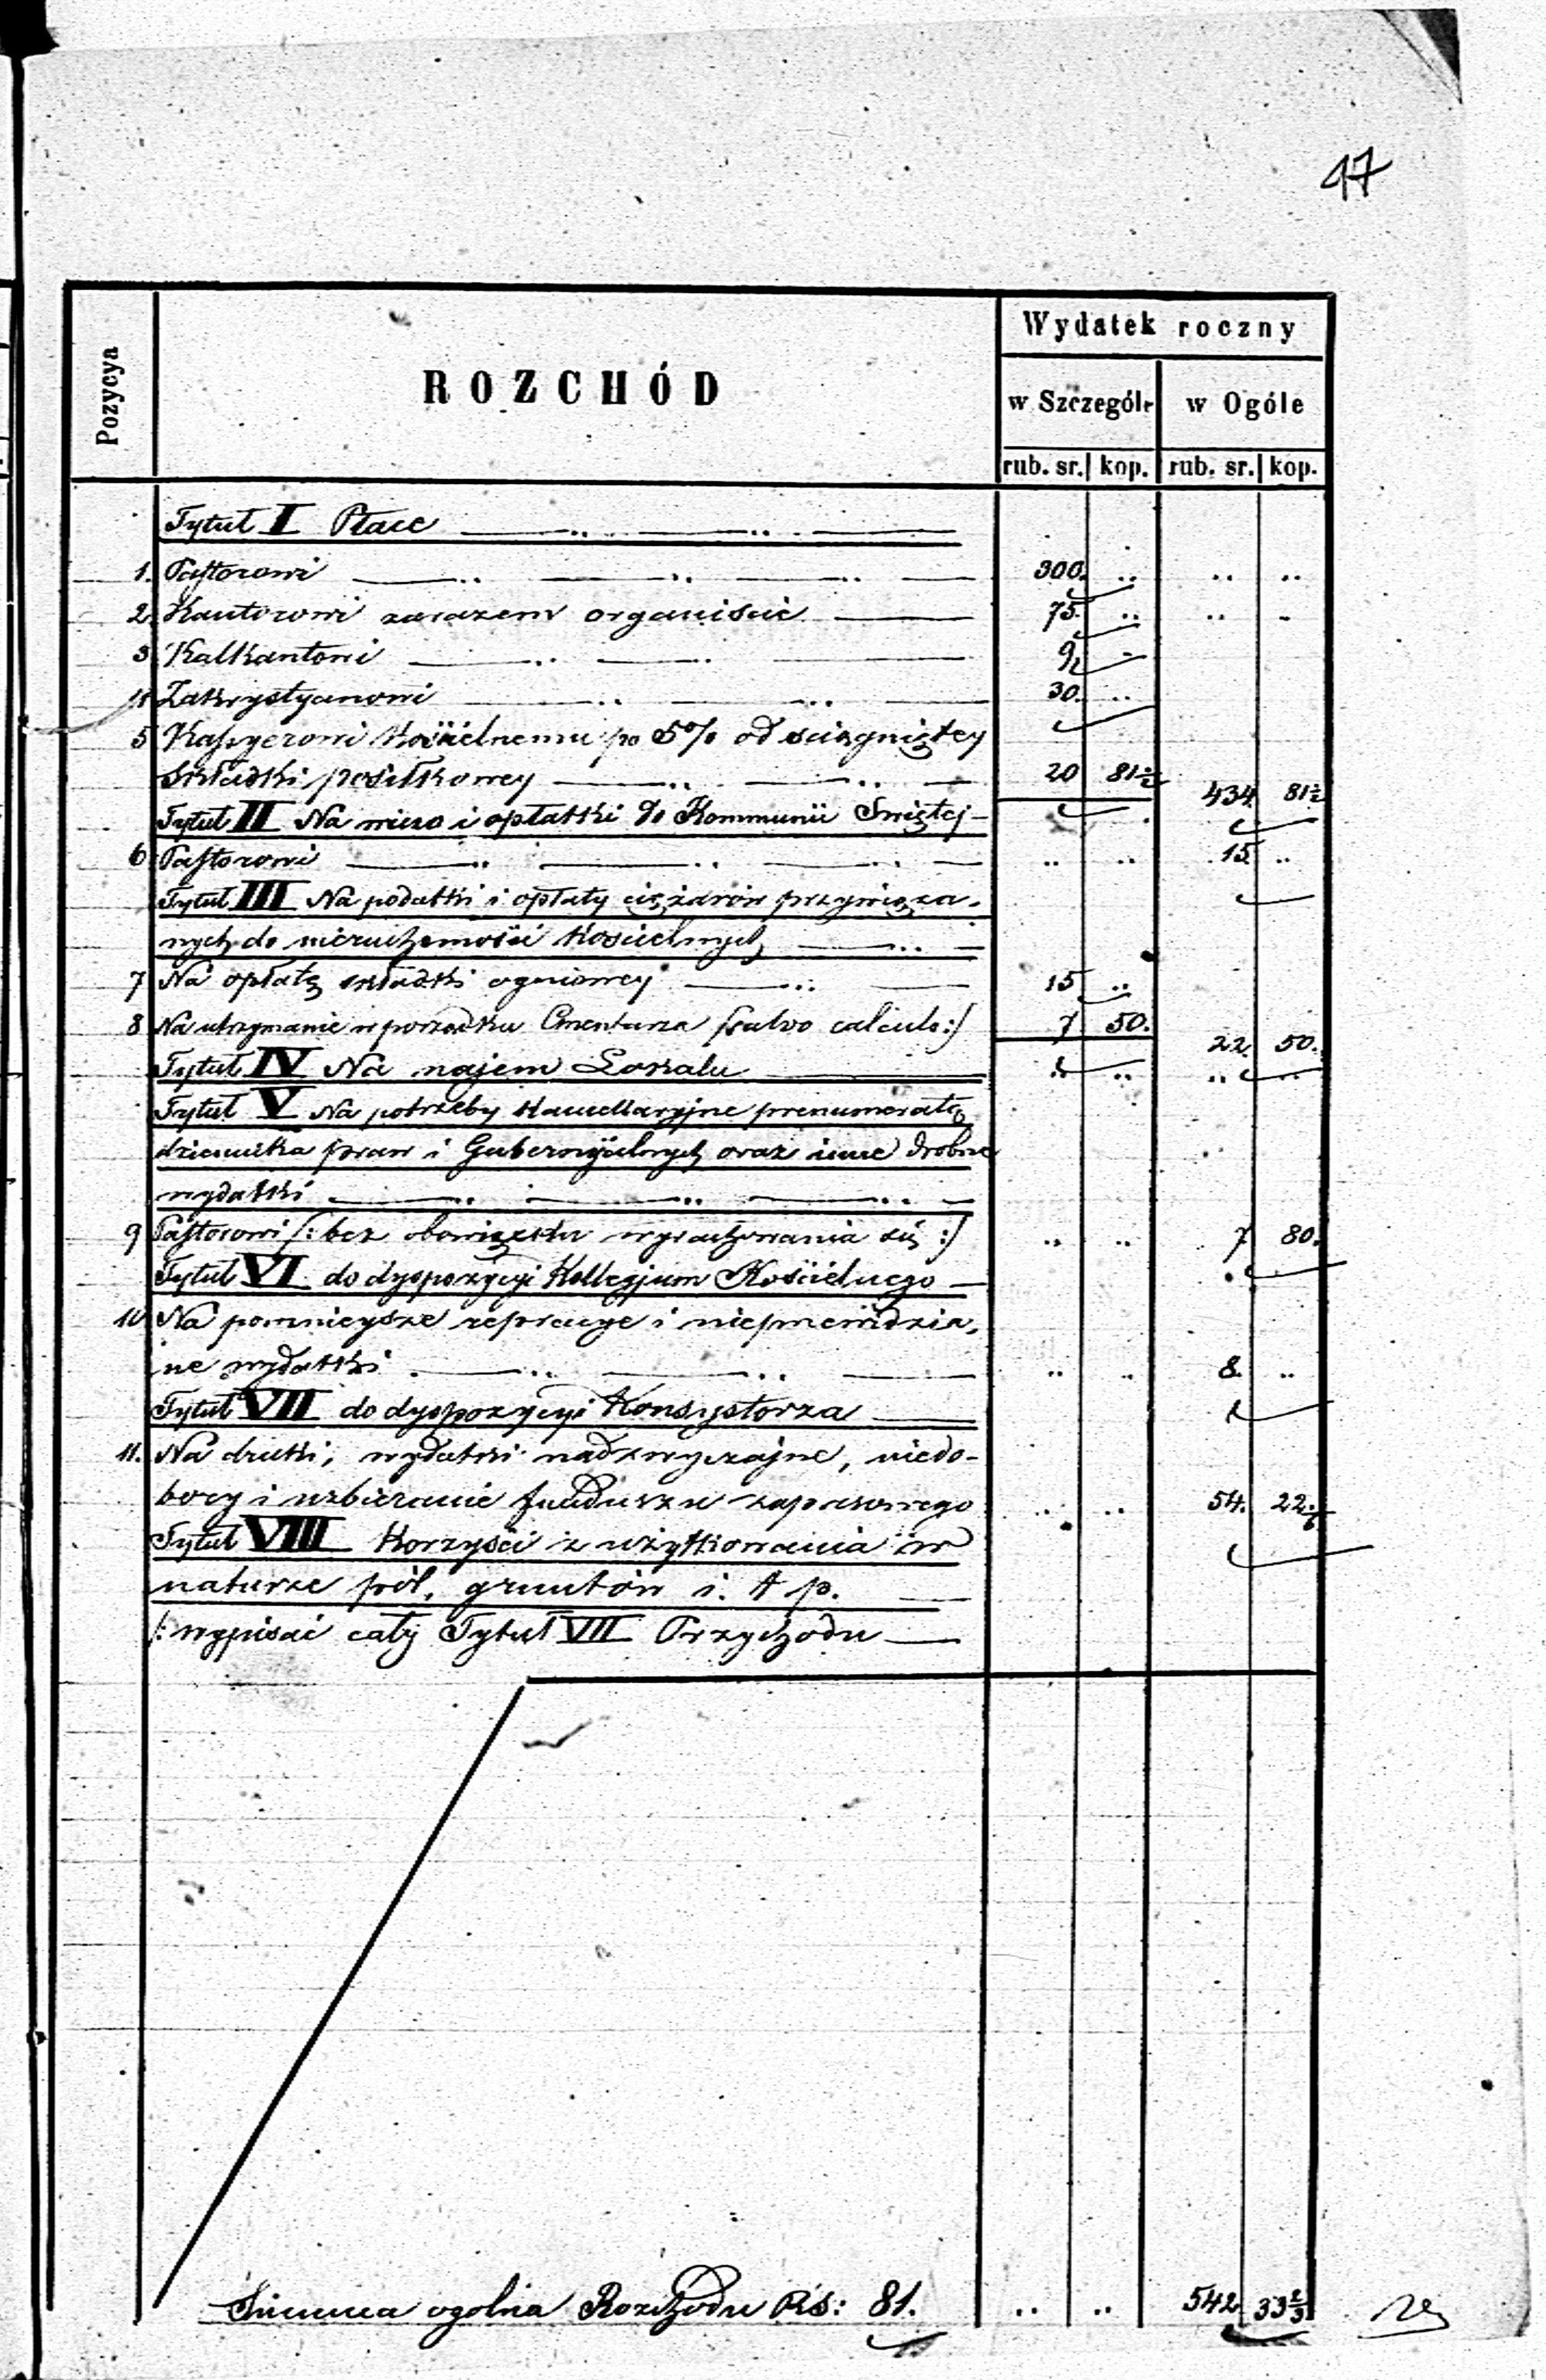 47
Pozycya
ROZCHÓD
Wydatek roczny
w Szczególe w Ogóle
rub. sr. kop. rub. sr. kop.
Tytuł I Płace
1. Pastorowi 300. .. .. ..
2. Kantorowi zarazem organiście 75. .. .. -
3. Kalkantowi 9 -
4. Zakrystyanowi 30. ..
5 Kassyerowi Kościelnemu po 5% od ściągniętey
składki posiłkowey 20 81½ 434 81½
Tytuł II Na wino i opłatki do Kommunii Swiętej
6 Pastorowi .. .. 15 ..
Tytuł III Na podatki i opłaty ciężarów przywiąza-
nych do nieruchomości Kościelnych
7 Na opłatę składki ogniowey 15 ..
8 Na utrzymanie w porządku Cmentarza /salvo calculo:/ 7 50. 22. 50.
Tytuł IV Na najem Lokalu .. .. .. ..
Tytuł V Na potrzeby Kancellaryjne prenumeratę
dziennika praw i Gubernijalnych oraz inne drobne
wydatki
9 Pastorowi /:bez obowiązku wyrachowania się:/ .. .. 7 80.
Tytuł VI do dyspozycyi Kollegjum Kościelnego
10 Na pomnieysze reperacye i nieprzewidzia-
ne wydatki .. .. 8. ..
Tytuł VII do dyspozycyi Konsystorza
11. Na druki, wydatki nadzwyczajne, niedo-
bory i uzbieranie funduszu zapasowego .. .. 54. 22
Tytuł VIII Korzyści z użytkowania w
naturze pól, gruntów i. t p.
/: wypisać cały Tytuł VII Przychodu
Summa ogolna Rozchodu Rs: 81. .. .. 542 33⅔